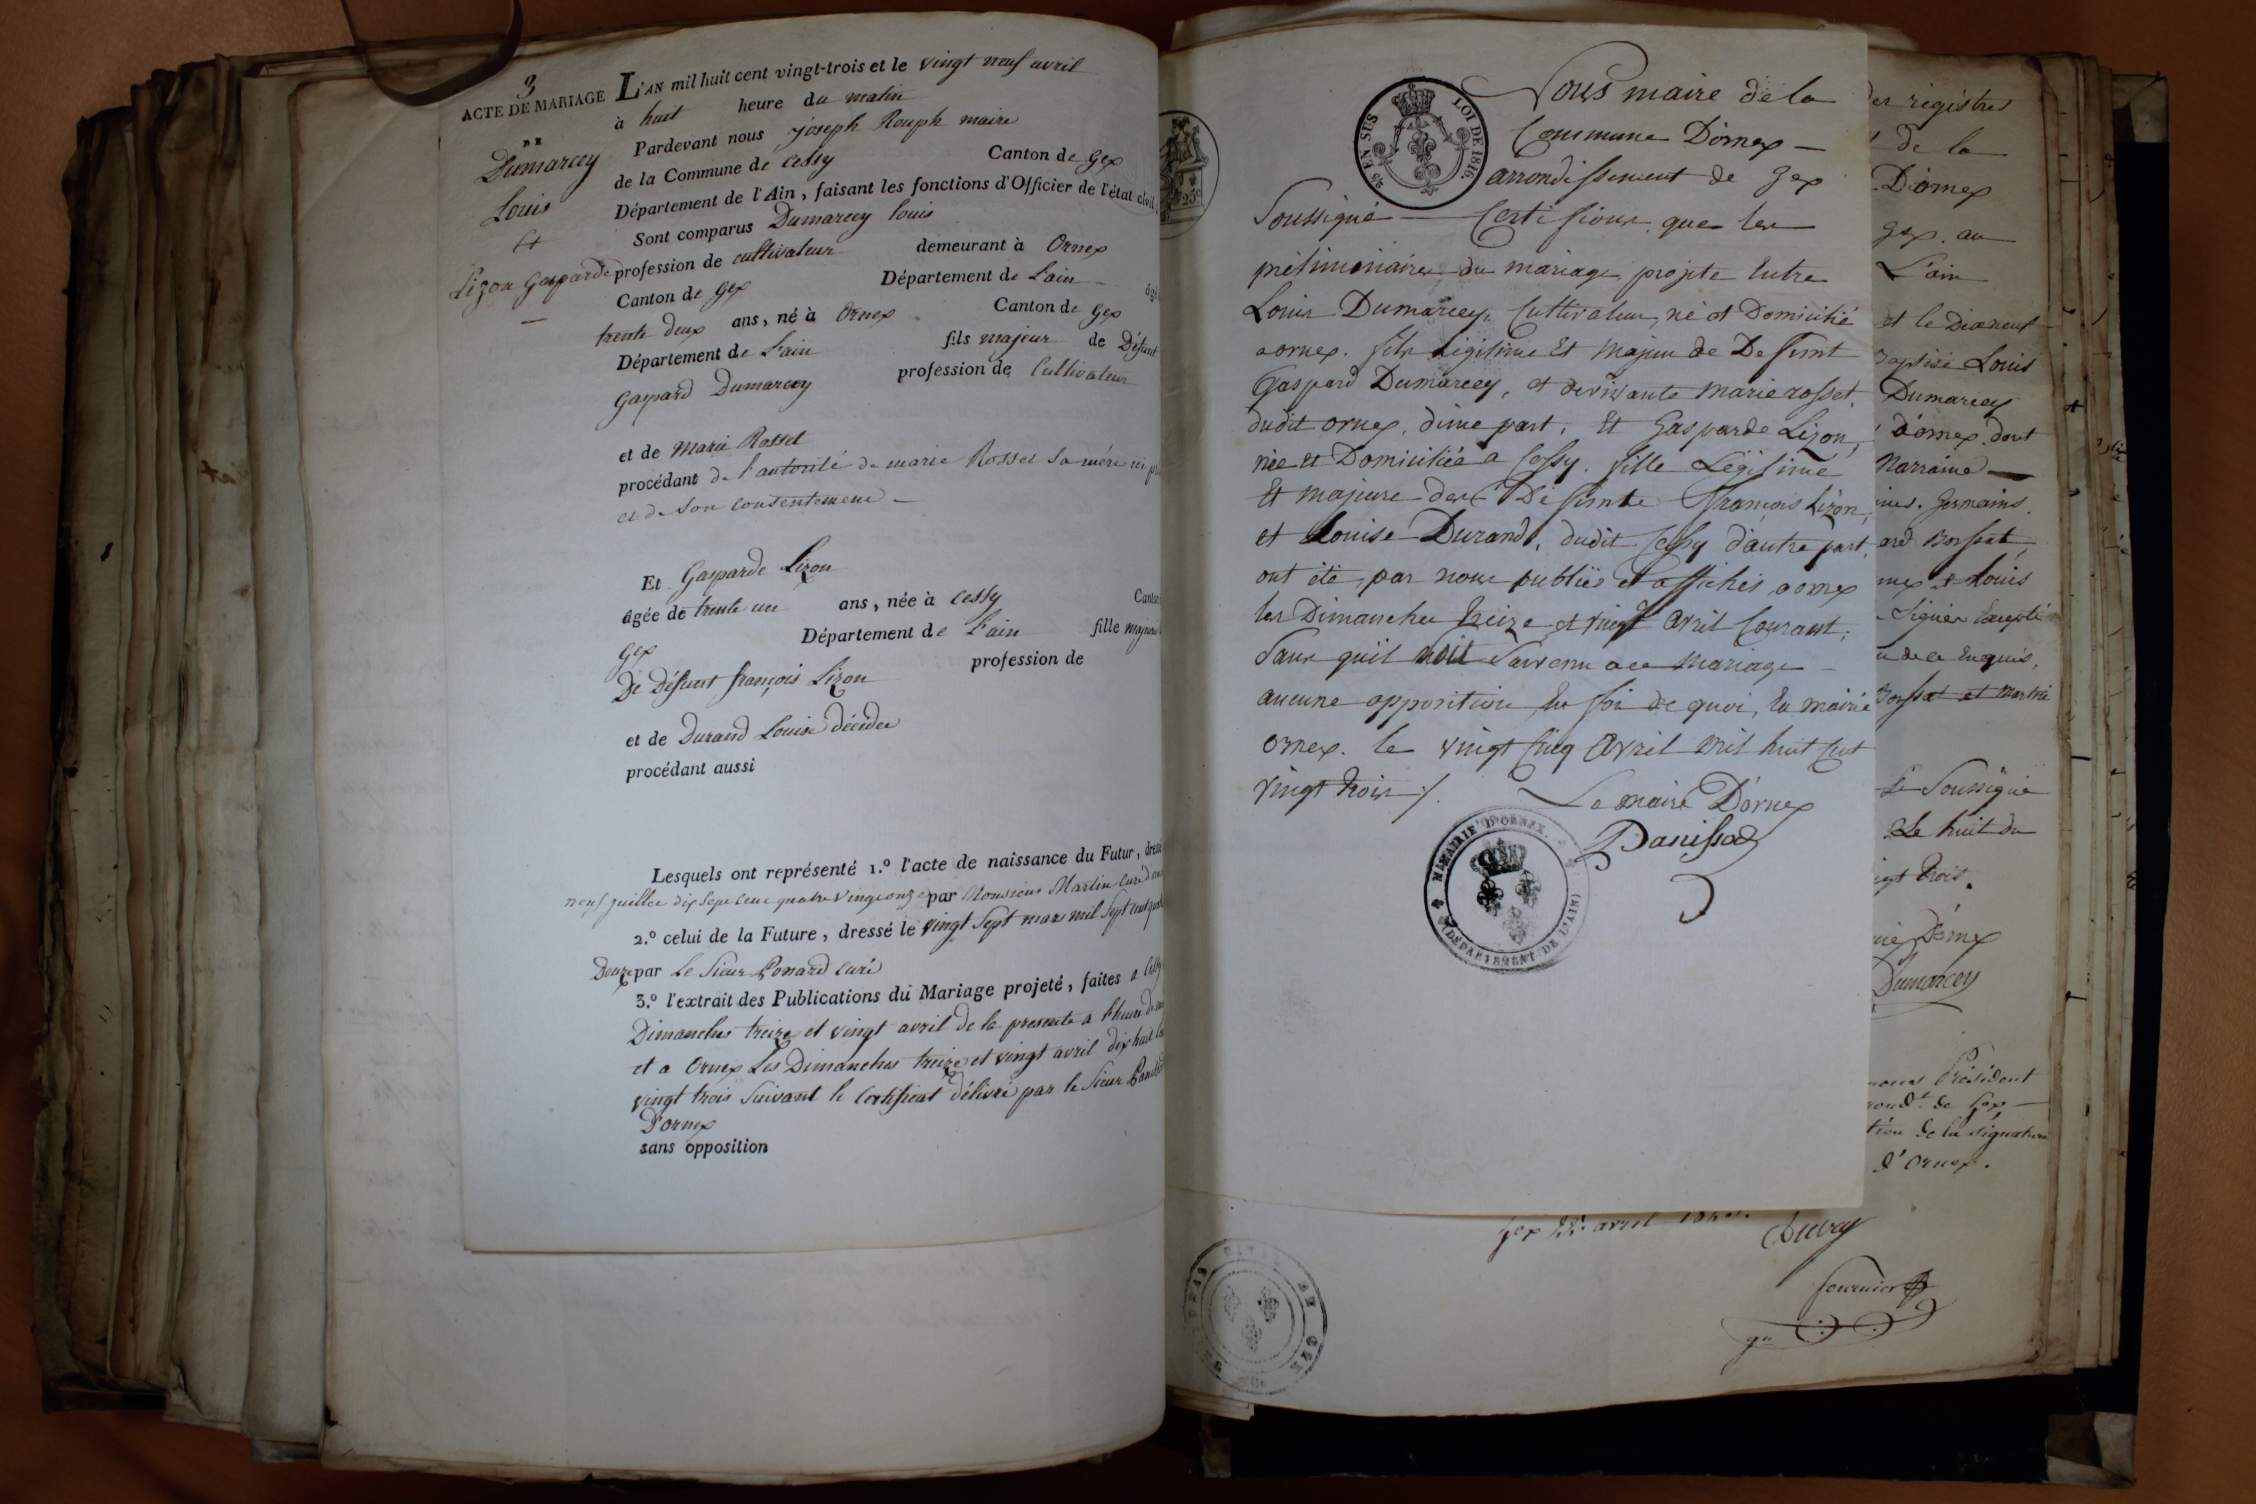 3
ACTE DE MARIAGE
DE
Dumarcey
Louis
et
Lizon Gasparde
L'AN mil huit cent vingt-trois et le vingt neuf avril
à huit heure du matin
Pardevant nous joseph Rouph maire
de la Commune de Cessy Canton de Gex
Département de l'Ain, faisant les fonctions d'Officier de l'état civil
Sont comparus Dumarcey louis
profession de cultivateur demeurant à Ornex
Canton de Gex Département de L'ain âgé
trente deux ans, né à Ornex Canton de Gex
Département de L'ain fils majeur de Défunt
Gaspard Dumarcey profession de Cultivateur
et de Marie Rosset
procédant de l'autorité de marie Rosset Sa mère ici
et de Son consentement
Et Gasparde Lizon
âgée de trente un ans, née à Cessy Canton
Gex Département de L'ain fille majeure
De Défunt françois Lizon profession de
et de Durand Louise décédée
procédant aussi
Lesquels ont représenté 1.º l'acte de naissance du Futur, dressé
neuf juillet dix Sept cent quatre vingt onze par Monsieur Martin curé
2.º celui de la Future, dressé le vingt Sept mars mil Sept cent
Douze par Le Sieur Ponard curé
3.º l'extrait des Publications du Mariage projeté, faites a Cessy
Dimanches treize et vingt avril de la presente a l'heure de
et a Ornex Les Dimanches treize et vingt avril dix huit
vingt trois Suivant le Certificat délivré par le Sieur
D'ornex
sans opposition
25c
25c EN SUS LOI DE 1816.
Nous maire de la
Commune D'ornex —
arrondissement de Gex
Soussigné — Certifions que les
préliminaires du mariage projeté Entre
Louis Dumarcey, Cultivateur, né et Domicilié
a ornex. fils Légitime Et Majeur de Defunt
Gaspard Dumarcey, et de vivante Marie rosset,
dudit ornex, d'une part, Et Gasparde Lizon,
née et Domiciliée a Cessy. fille Légitime
Et majeure des Défunts françois Lizon,
et Louise Durand, dudit Cessy d'autre part,
ont été, par nous publiés et affichés, a ornex
les Dimanches treize et vingt avril Courant,
Sans quil soit Survenu a ce Mariage —
aucune opposition En foi de quoi, En mairie
ornex. le vingt Cinq avril mil huit Cent
vingt trois ./.
Le maire D'ornex
Panissod
MAIRIE D'ORNEX. DÉPARTEMENT DE L'AIN
des régistres
de la
D'ornex
Gex. au
L'ain
et le Dixneuf
Baptisé Louis
Dumarcey
d'ornex. dont
Marraine —
Germains.
Rosset
ornex et Louis
Signer
de ce Enquis,
Le Soussigné
Le huit du
vingt trois.
D'ornex
Dumarcey
nous Président
de Gex —
de la signature
d'Ornex.
Gex avril
fournier